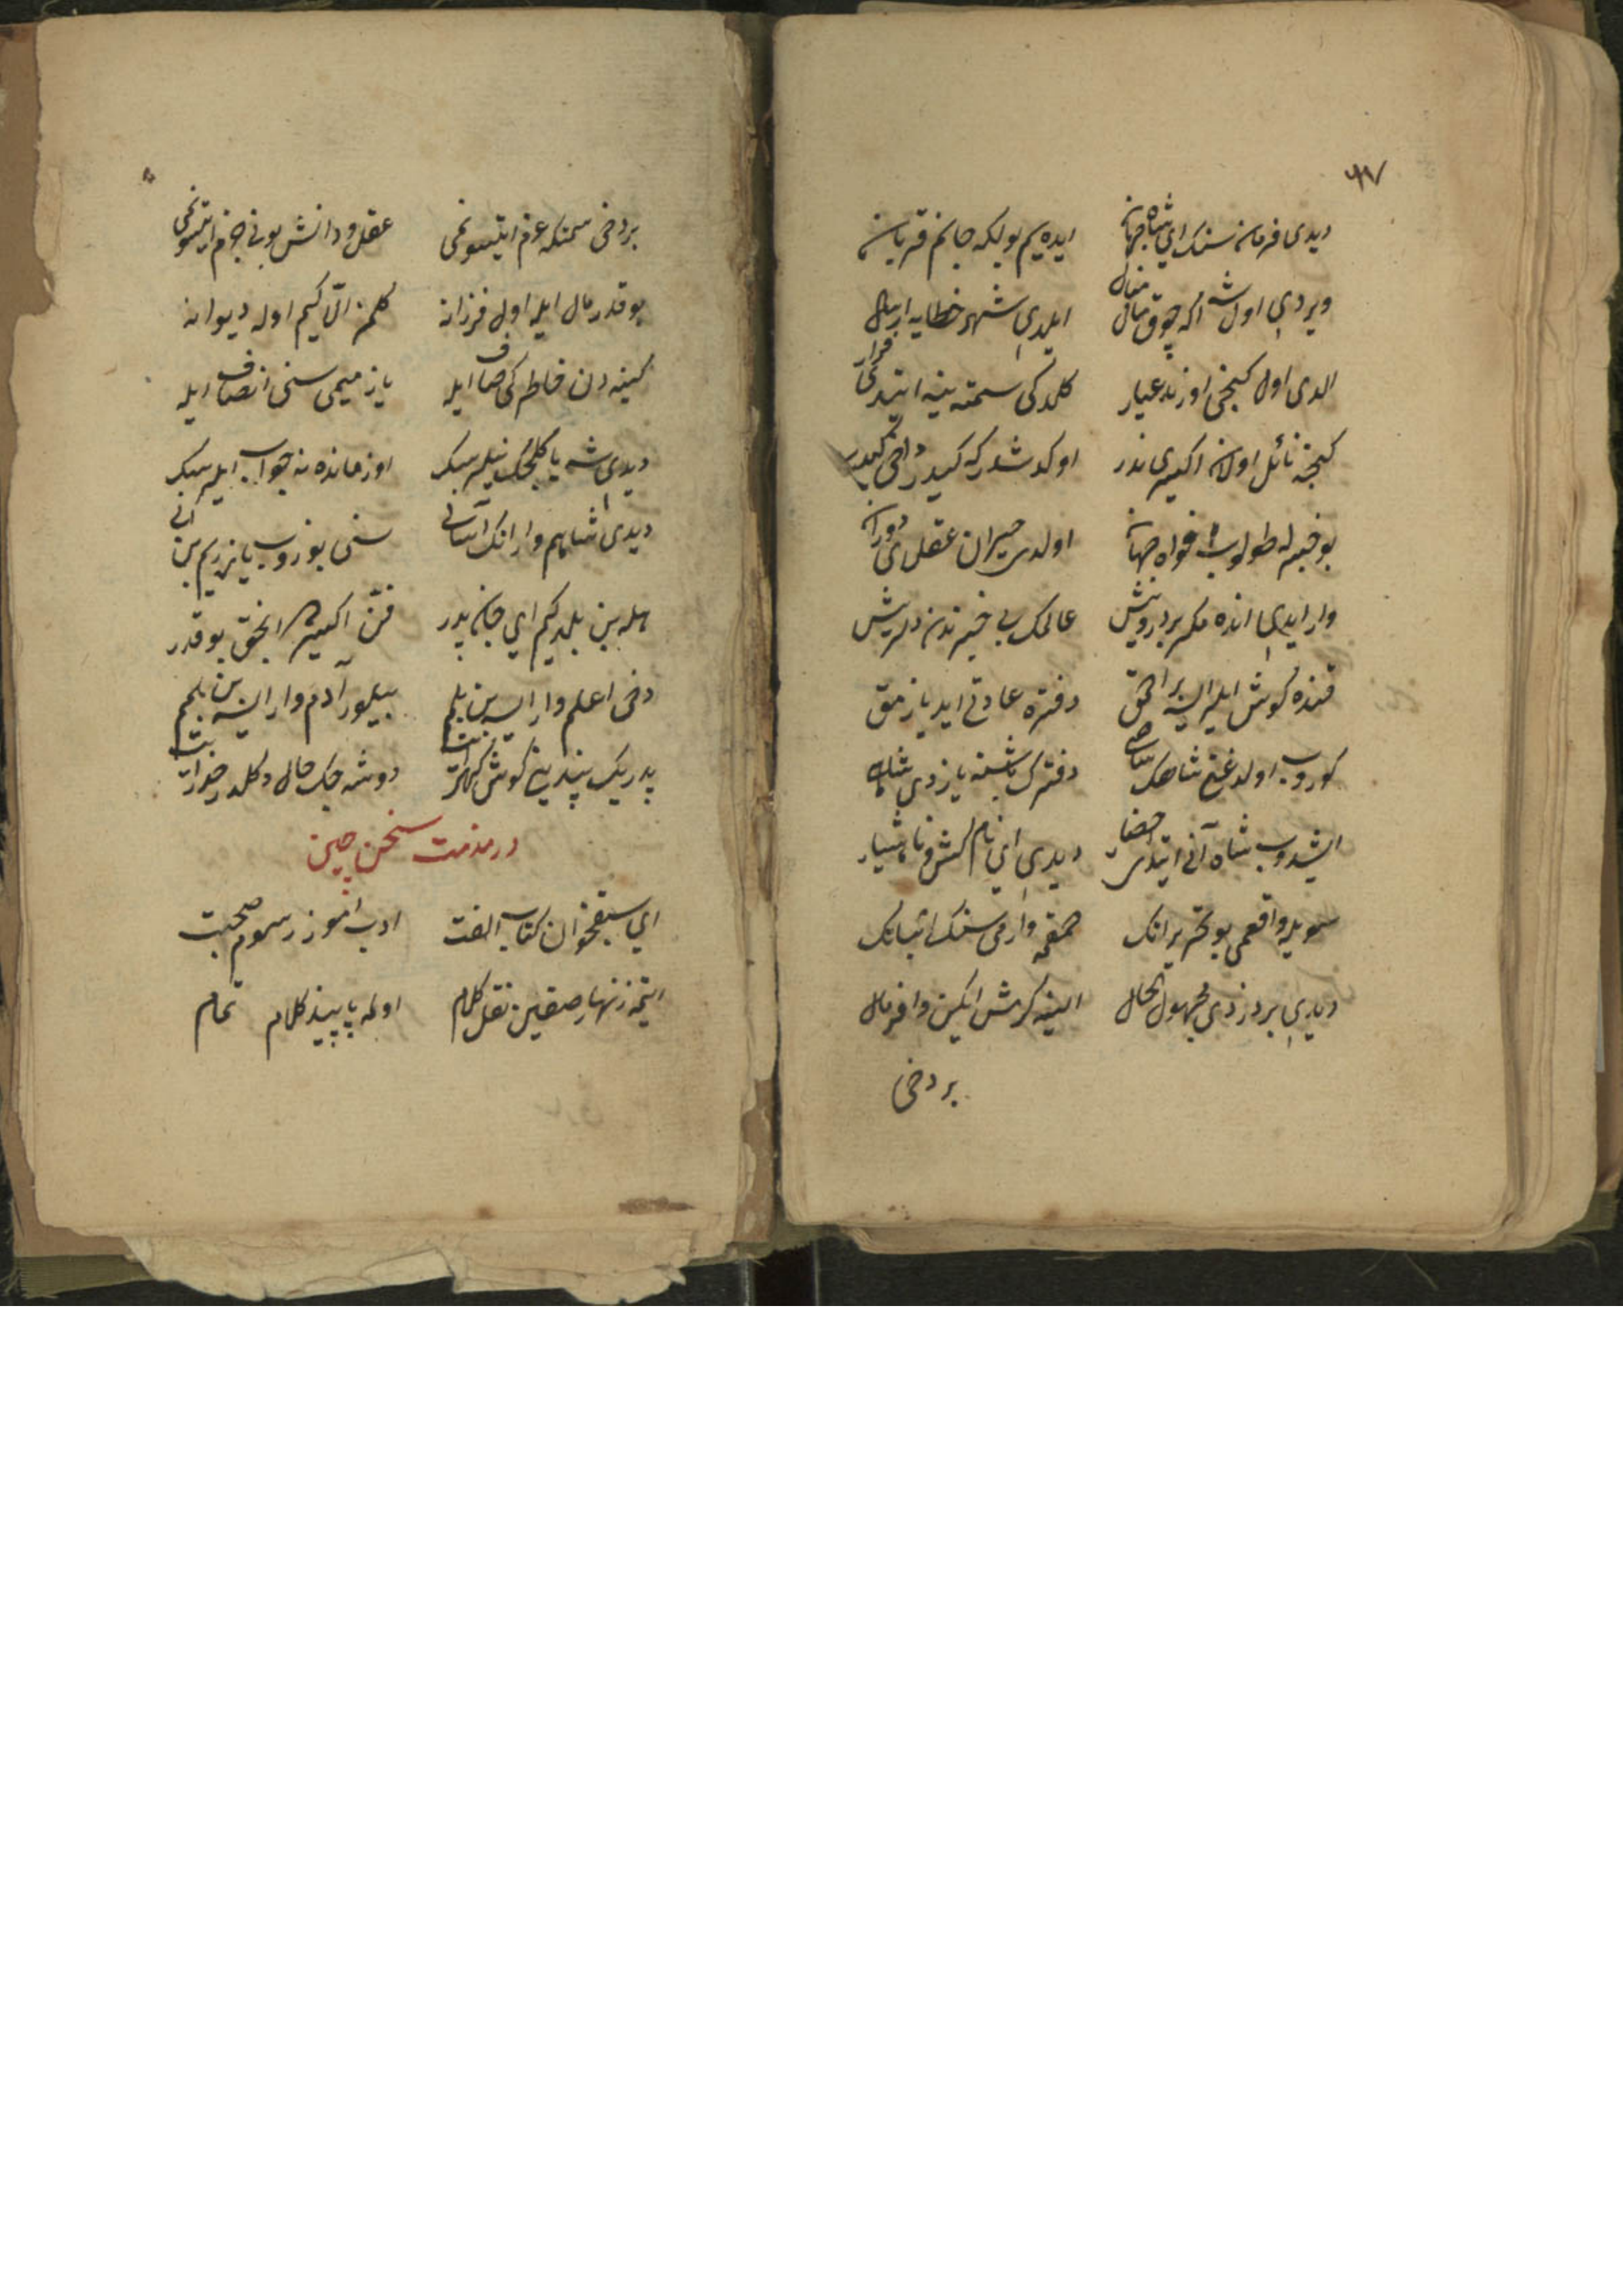 ٩٧
دیدی فرمان سنك ای شاه جهان ایده یم یولكه جانم قربان
ویردی اول شه اكه چوق مال منال ایلدی شهر خطایه ارسال
الدی اول كنجی اوزند عیار كلدكی سمتنه ینه ایتدی فرار
كیجه نائل اولان اكسیری ندر اوكد شدر كه كیدر داخی كیدر
بو خبرله طولوب افواه جهان اولدی حیران عقلای دوران
وار ایدی انده مكر بر درویش عالمك بی خبرندن دلریش
قنده كوش ایلر ایسه بر احمق دفتره عادتی ایدی یازمق
كوروب اولدغنی شاهك دفترك باشنه یازدی شاهی
ایشدوب شاه آنی ایتدی احضار دیدی ای نام كش و نا هشیار
سویله واقعمی بو تحریر انك حمقه وارمی سنك اثباتك
دیدی بر دزدی مجهول الحال الینه كرمش ایكن وافر مال
بر دخی
بر دخی سمتكه عزم ایتسونمی عقل و دانش بونی جزم ایتسونمی
بو قدر مال ایله اول فرزانه كلمز الّا كیم اوله دیوانه
كینه دن خاطركی صاف ایله یازمیمی سنی انصاف ایله
دیدی شه یا كلیجك نیلرسك او زمانده نه جواب ایلرسك
دیدی شاهم وار انك آسانی سنی بوزوب یازریم بن آنی
بیله بن بلمد كیم ای جان پدر فنّ اكسیر انجق بو قدر
دخی اعلم وار ایسه بن بلمم بیلور آدم وار ایسه بن بلمم
پدریك پندینی كوش ایت دوشه جك حال دكلدر
در مذمت سخن چین
ای سبقخوان كتاب الفت ادب اموز رسوم صحبت
ایتمه زنهار صقین نقل كلام اوله پاپیذ كلام تمام